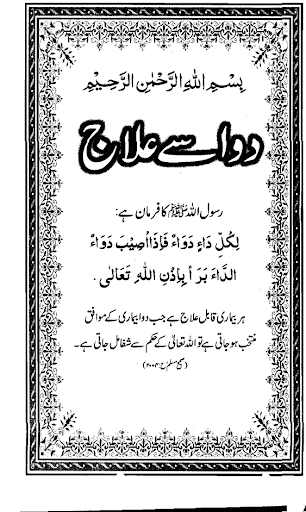 بِسْمِ اللهِ الرَّحْمٰنِ الرَّحِيْمِ
دوا سے علاج
رسول اللہ ﷺ کا فرمان ہے:
لِكُلِّ دَاءٍ دَوَاءٌ فَاِذَا اُصِيْبَ دَوَاءُ
الدَّاءِ بَرَأَ بِاِذْنِ اللهِ تَعَالٰى .
ہر بیماری قابل علاج ہے جب دوا بیماری کے موافق
منتخب ہو جاتی ہے تو اللہ تعالیٰ کے حکم سے شفا مل جاتی ہے۔
(صحیح مسلم ح: ۲۲۰۴)